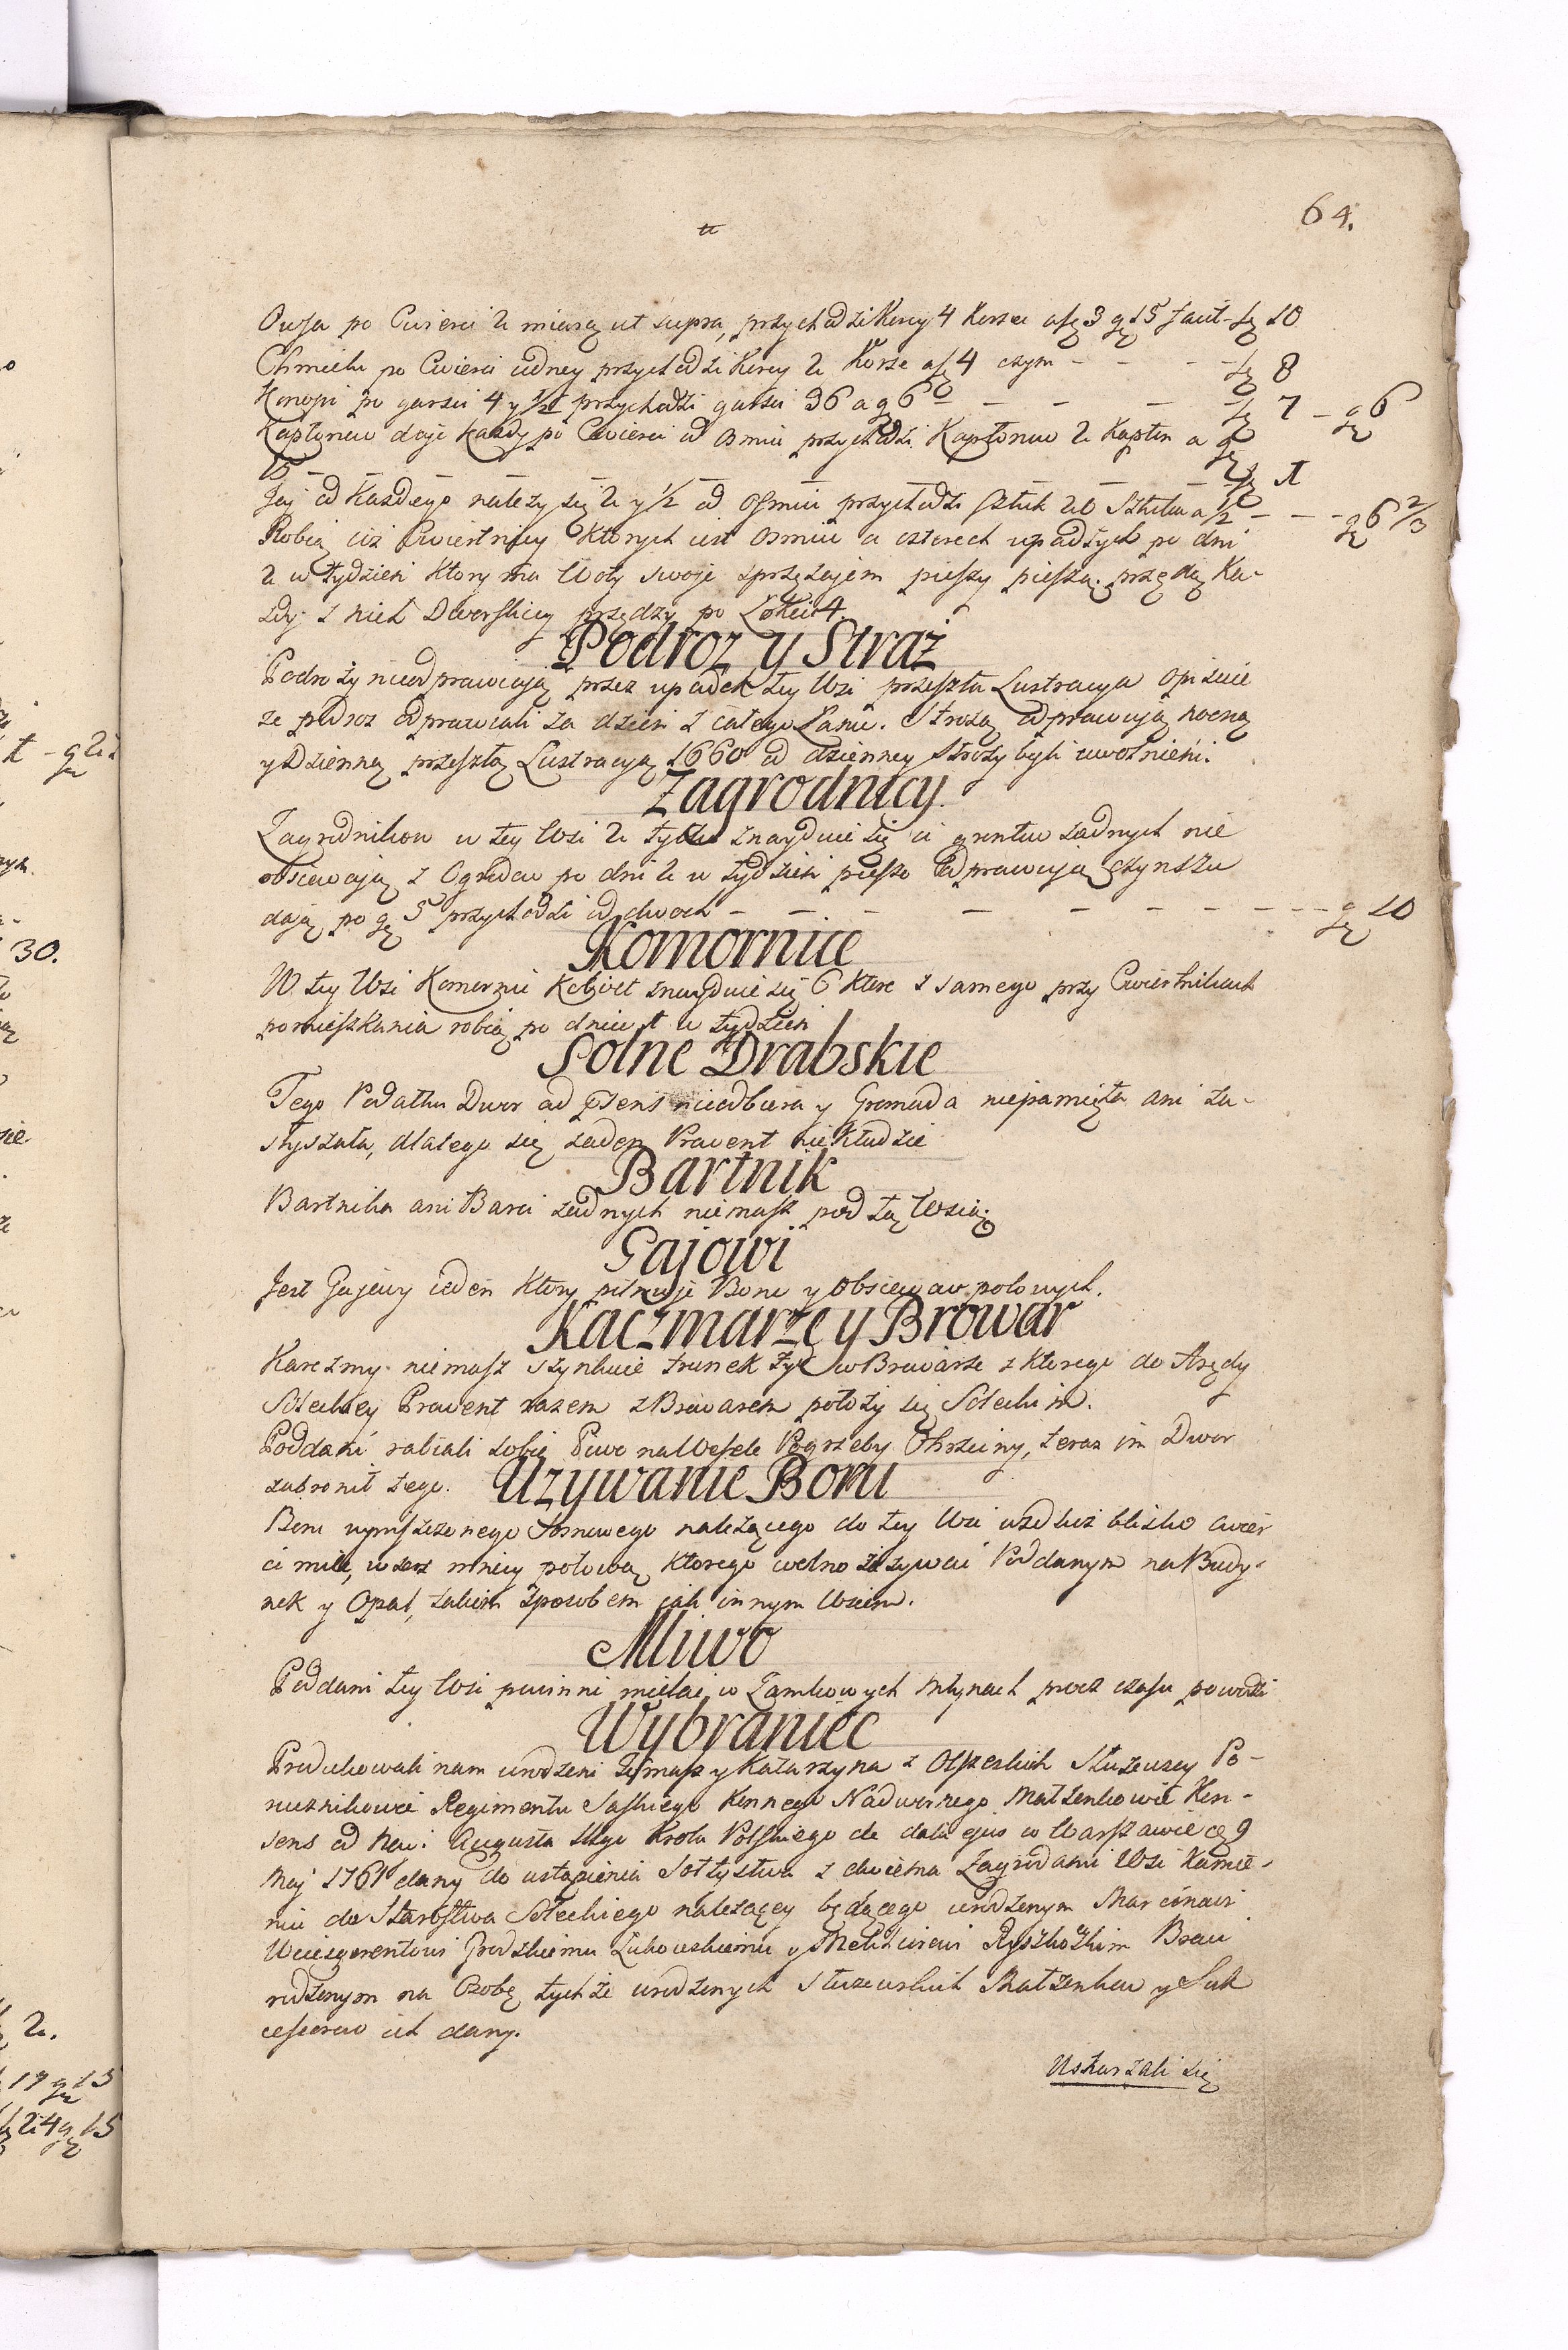 64.
Owsa po Cwierci 2 miarą ut supra, przychodzi Korcy 4 Korzec a fz 3 gz 15 facit fz 10
Chmielu po Cwierci iedney przychodzi Korcy 2 Korze a fz 4 czym - - - - fz 8
Konopi po garści 4 y 1/2 przychodzi garści 36 a gz 6 - - - - fz 7 - gz 6
Kapłonow daje każdy po Cwierci od osmiu przychodzi Kapłonow 2 Kapłon a gz
15 - - - - fz 1
Jaj od Każdego należy się 2 y 1/2 od osmiu przychodzi sztuk 20 Sztuka a 1/2 - - - gz 6 2/3
Robią ciż Cwiertnicy których iest osmiu a czterech upadłych po dni
2 w tydzień ktory ma Woły swoje sprzężajem pieszy pieszą. przędą Ka-
żdy z nich Dworskiey przędzy po Łokci 4.
Podroz y Straż
Podroży nieodprawiają przez upadek tey Wsi przeszła Lustracya opisuie
że podroż odprawiali za dzień z całego Łanu. Strożą odprawują nocną
y Dzienną przeszłą Lustracyą 1660 od dzienney Stroży byli uwolnieni.
Zagrodnicy.
Zagrodnikow w tey Wsi 2 tylko znayduie się ci gruntu żadnych nie
obsiewają z Ogrodow po dni 2 w tydzień pieszo odprawują czynszu
dają po gz 5 przychodzi od dwoch - - - - - - - gz 10
Komornice
W tey Wsi Komornic Kobiet znayduie się 6 które z samego przy Cwiertnikach
pomieszkania robią po dniu 1 w tydzień
Solne Drabskie
Tego Podatku Dwor ad psens nieodbiera y Gromada niepamięta ani za-
słyszała, dlatego się żaden Prowent nie Kładzie
Bartnik
Bartnika ani Barci żadnych niemasz pod tą Wsią.
Gajowi
Jest Gajowy ieden ktory pilnuje Boru y Obsiewow polowych.
Kaczmarze y Browar
Karczmy niemasz szynkuie trunek Żyd w Browarze z ktorego do Arędy
Soleckiey Prowent razem z Browarem położy się Soleckim.
Poddani rabiali sobie Piwo na Wesele Pogrzeby Chrzciny, teraz im Dwor
zabronił tego.
Uzywanie Boru
Boru wypuszczonego Sosnowego należącego do tey Wsi wzdłuż blisko cwier
ci mile, wszerz mniey połową ktorego wolno zażywać Poddanym na Budy-
nek y Opał, takim sposobem jak innym Wsiom.
Mliwo
Poddani tey Wsi powinni mielać w Zamkowych Młynach procz czasu powodzi
Wybraniec
Produkowali nam urodzeni Tomasz y Katarzyna z Olszeskich Służewscy Po-
rucznikowie Regimentu Saskiego Konnego Nadwornego Małżenkowie Kon-
sens od Nay: Augusta IIIgo Krola Polskiego de data ejus w Warszawie d 9
Maj 1761 dany do ustąpienia Sołtystwa z dwiema Zagrodami Wsi Kamie-
niu do Starostwa Soleckiego należącey będącego urodzonym Marcinowi
Wicesgerentowi Grodzkiemu Łukowskiemu y Melchiorowi Ryszkoskim Braci
rodzonym na Osobę tychże urodzonych Służewskich Małżenkow y Suk
cessorow ich dany.
Uskarżali się